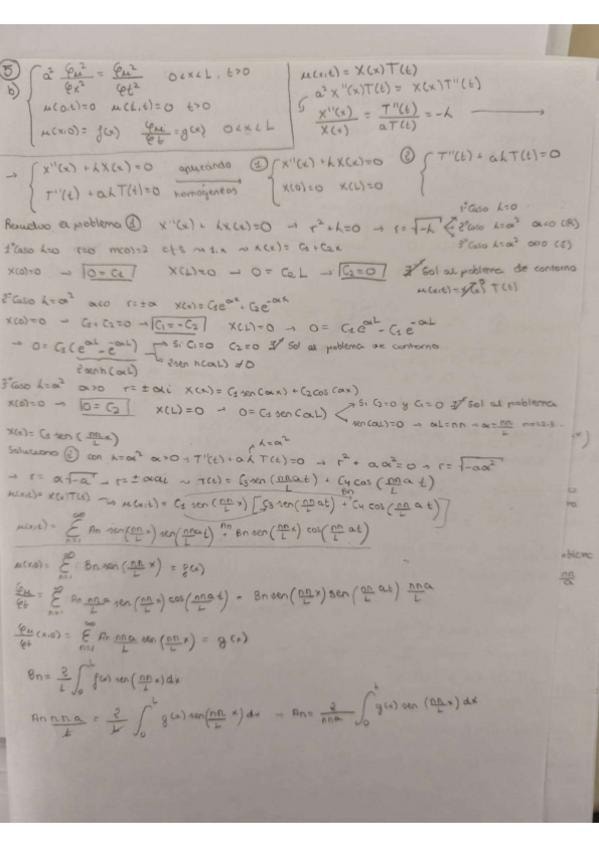 5
b) a² φu²/φx² = φu²/φt² 0<x<L, t>0
u(0,t)=0 u(L,t)=0 t>0
u(x,0)= f(x) φu/φt = g(x) 0<x<L
u(x,t) = X(x) T(t)
a² X''(x)T(t) = X(x) T''(t)
X''(x)/X(x) = T''(t)/aT(t) = -λ →
→ X''(x) + λX(x) = 0 aplicando homogéneos → ① X''(x) + λX(x) = 0 ② T''(t) + aλT(t) = 0
T''(t) + aλT(t) = 0 X(0)=0 X(L)=0
Resuelvo el problema ① X''(x) + λX(x) = 0 → r² + λ = 0 → r = √-λ
1º Caso λ=0
2º Caso λ=-α² α<0 (R)
3º Caso λ=α² α>0 (C)
1º Caso λ=0 r=0 m(0)=2 X(x) = C1 + C2x
X(0)=0 → 0 = C1 X(L)=0 → 0 = C2 L → C2=0 ∄ Sol al problema de contorno
u(x,t) = T(t)
2º Caso λ=-α² α<0 r=±α X(x) = C1e^αx + C2e^-αx
X(0)=0 → C1+C2=0 → C1=-C2 X(L)=0 → 0 = C1e^αL - C1e^-αL
→ 0 = C1(e^αL - e^-αL) Si C1=0 C2=0 ∄ Sol al problema de contorno
2senh(αL) 2senh(αL) ≠0
3º Caso λ=α² α>0 r=±αi X(x) = C1 sen(αx) + C2 cos(αx)
X(0)=0 → 0=C2 X(L)=0 → 0= C1 sen(αL) Si C2=0 y C1=0 ∄ Sol al problema
sen(αL)=0 → αL=nπ → α=nπ/L n=1,2,3...
X(x) = C1 sen(nπ/L x)
λ=α²
Soluciono ② con λ=α² α>0 → T''(t) + aλT(t)=0 → r² + aα²=0 → r=√-aα²
→ r = α√-a → r=±αai → T(t) = C3 sen(nπ/L at) + C4 cos(nπ/L a t)
u(x,t) = X(x)T(t) → u(x,t) = C1 sen(nπ/L x) [C3 sen(nπ/L at) + C4 cos(nπ/L a t)]
u(x,t) = ∞Σn=1 An sen(nπ/L x) sen(nπ/L at) + Bn sen(nπ/L x) cos(nπ/L at)
u(x,0) = ∞Σn=1 Bn sen(nπ/L x) = f(x)
φu/φt = ∞Σn=1 An nπa/L sen(nπ/L x) cos(nπa/L t) - Bn sen(nπ/L x) sen(nπ/L at) nπa/L
φu/φt (x,0) = ∞Σn=1 An nπa/L sen(nπ/L x) = g(x)
Bn = 2/L ∫0L f(x) sen(nπ/L x) dx
An nπa/L = 2/L ∫0L g(x) sen(nπ/L x) dx → An = 2/nπa ∫0L g(x) sen(nπ/L x) dx